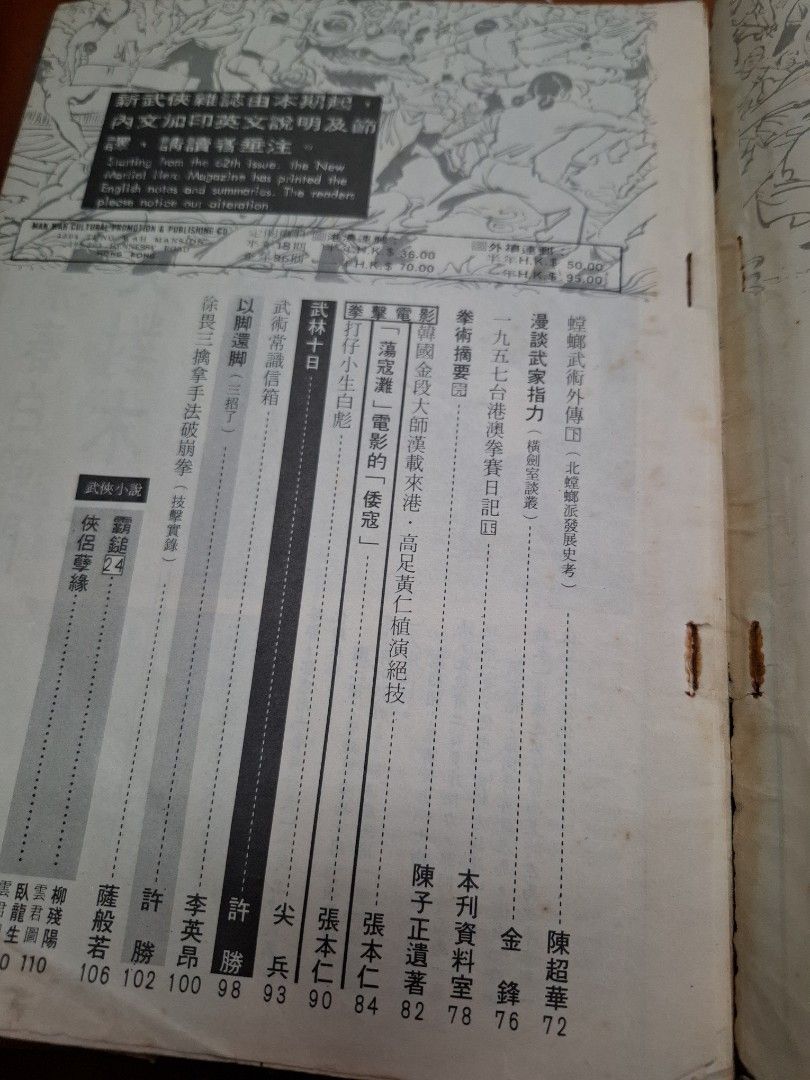 新武俠雜誌由本期起，
內文加印英文說明及節
譯，請讀者垂注。
Starting from the 62th issue, the New
Martial Hero Magazine has printed the
English notes and summaries. The readers
please notice our alteration.
MAN WAH CULTURAL PROMOTION & PUBLISHING CO.
HONG KONG
半年H.K.$ 36.00
H.K.$ 70.00
半年H.K.$ 50.00
年H.K.$ 95.00
螳螂武術外傳下（北螳螂派發展史考） 陳超華 72
漫談武家指力（橫劍室談叢） 金鋒 76
一九五七台港澳拳賽日記15 本刊資料室 78
拳術摘要 陳子正遺著 82
拳擊電影
韓國金段大師漢載來港．高足黃仁植演絕技 張本仁 84
「蕩寇灘」電影的「倭寇」 張本仁 90
打仔小生白彪 尖兵 93
武林十日 許勝 98
武術常識信箱 李英昂 100
以脚還脚（三招了） 許勝 102
徐畏三擒拿手法破崩拳（技擊實錄） 薩般若 106
武俠小說
霸鎚24 柳殘陽 雲君圖 110
俠侶孽緣 臥龍生